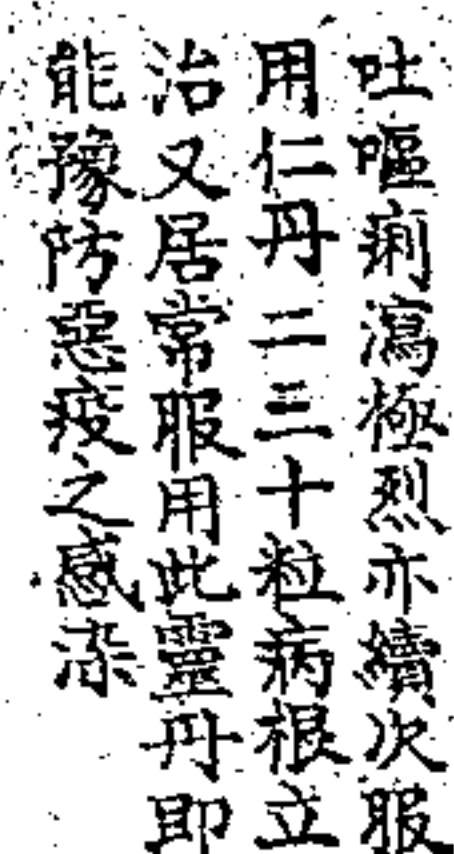 吐嘔痢瀉極烈亦續次服
用仁丹二三十粒病根立
治又居常服用此靈丹即
能豫防惡疫之感染